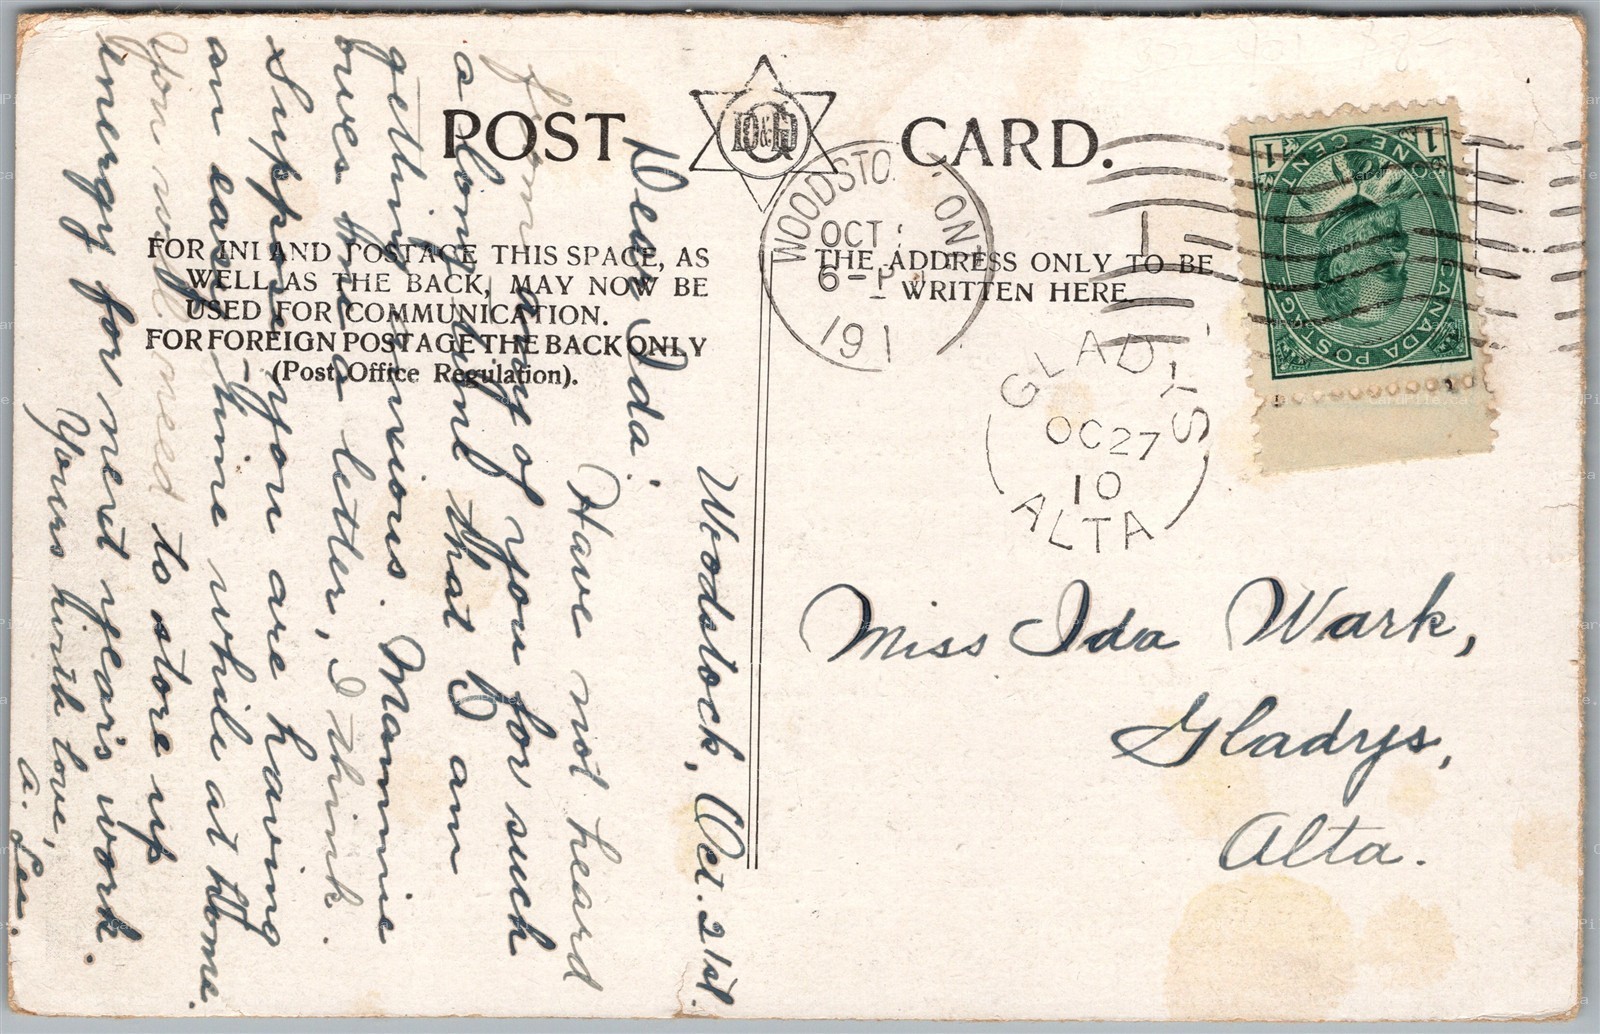 POST CARD.
D&G
FOR INLAND POSTAGE THIS SPACE, AS
WELL AS THE BACK, MAY NOW BE
USED FOR COMMUNICATION.
FOR FOREIGN POSTAGE THE BACK ONLY
(Post Office Regulation).
THE ADDRESS ONLY TO BE
WRITTEN HERE.
WOODSTO ONT
OCT
6-P
191
GLADYS
OC 27
10
ALTA
CANADA POSTAGE
ONE CENT
1 1
Miss Ida Wark,
Gladys,
Alta.
Woodstock, Oct. 21st.
Dear Ida.
Have not heard
from any of you for such
a long time that I am
getting anxious. Mammie
owes me a letter, I think.
Suppose you are having
an easy time while at Home.
You will need to store up
energy for next year's work.
Yours with love,
A.